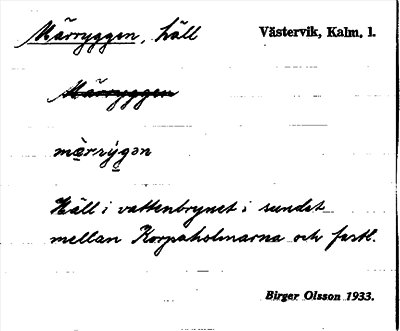 Märryggen, häll
Västervik, Kalm. l.
Märryggen
mèrrýgən
Häll i vattenbrynet i sundet
mellan Korpaholmarna och fastl.
Birger Olsson 1933.